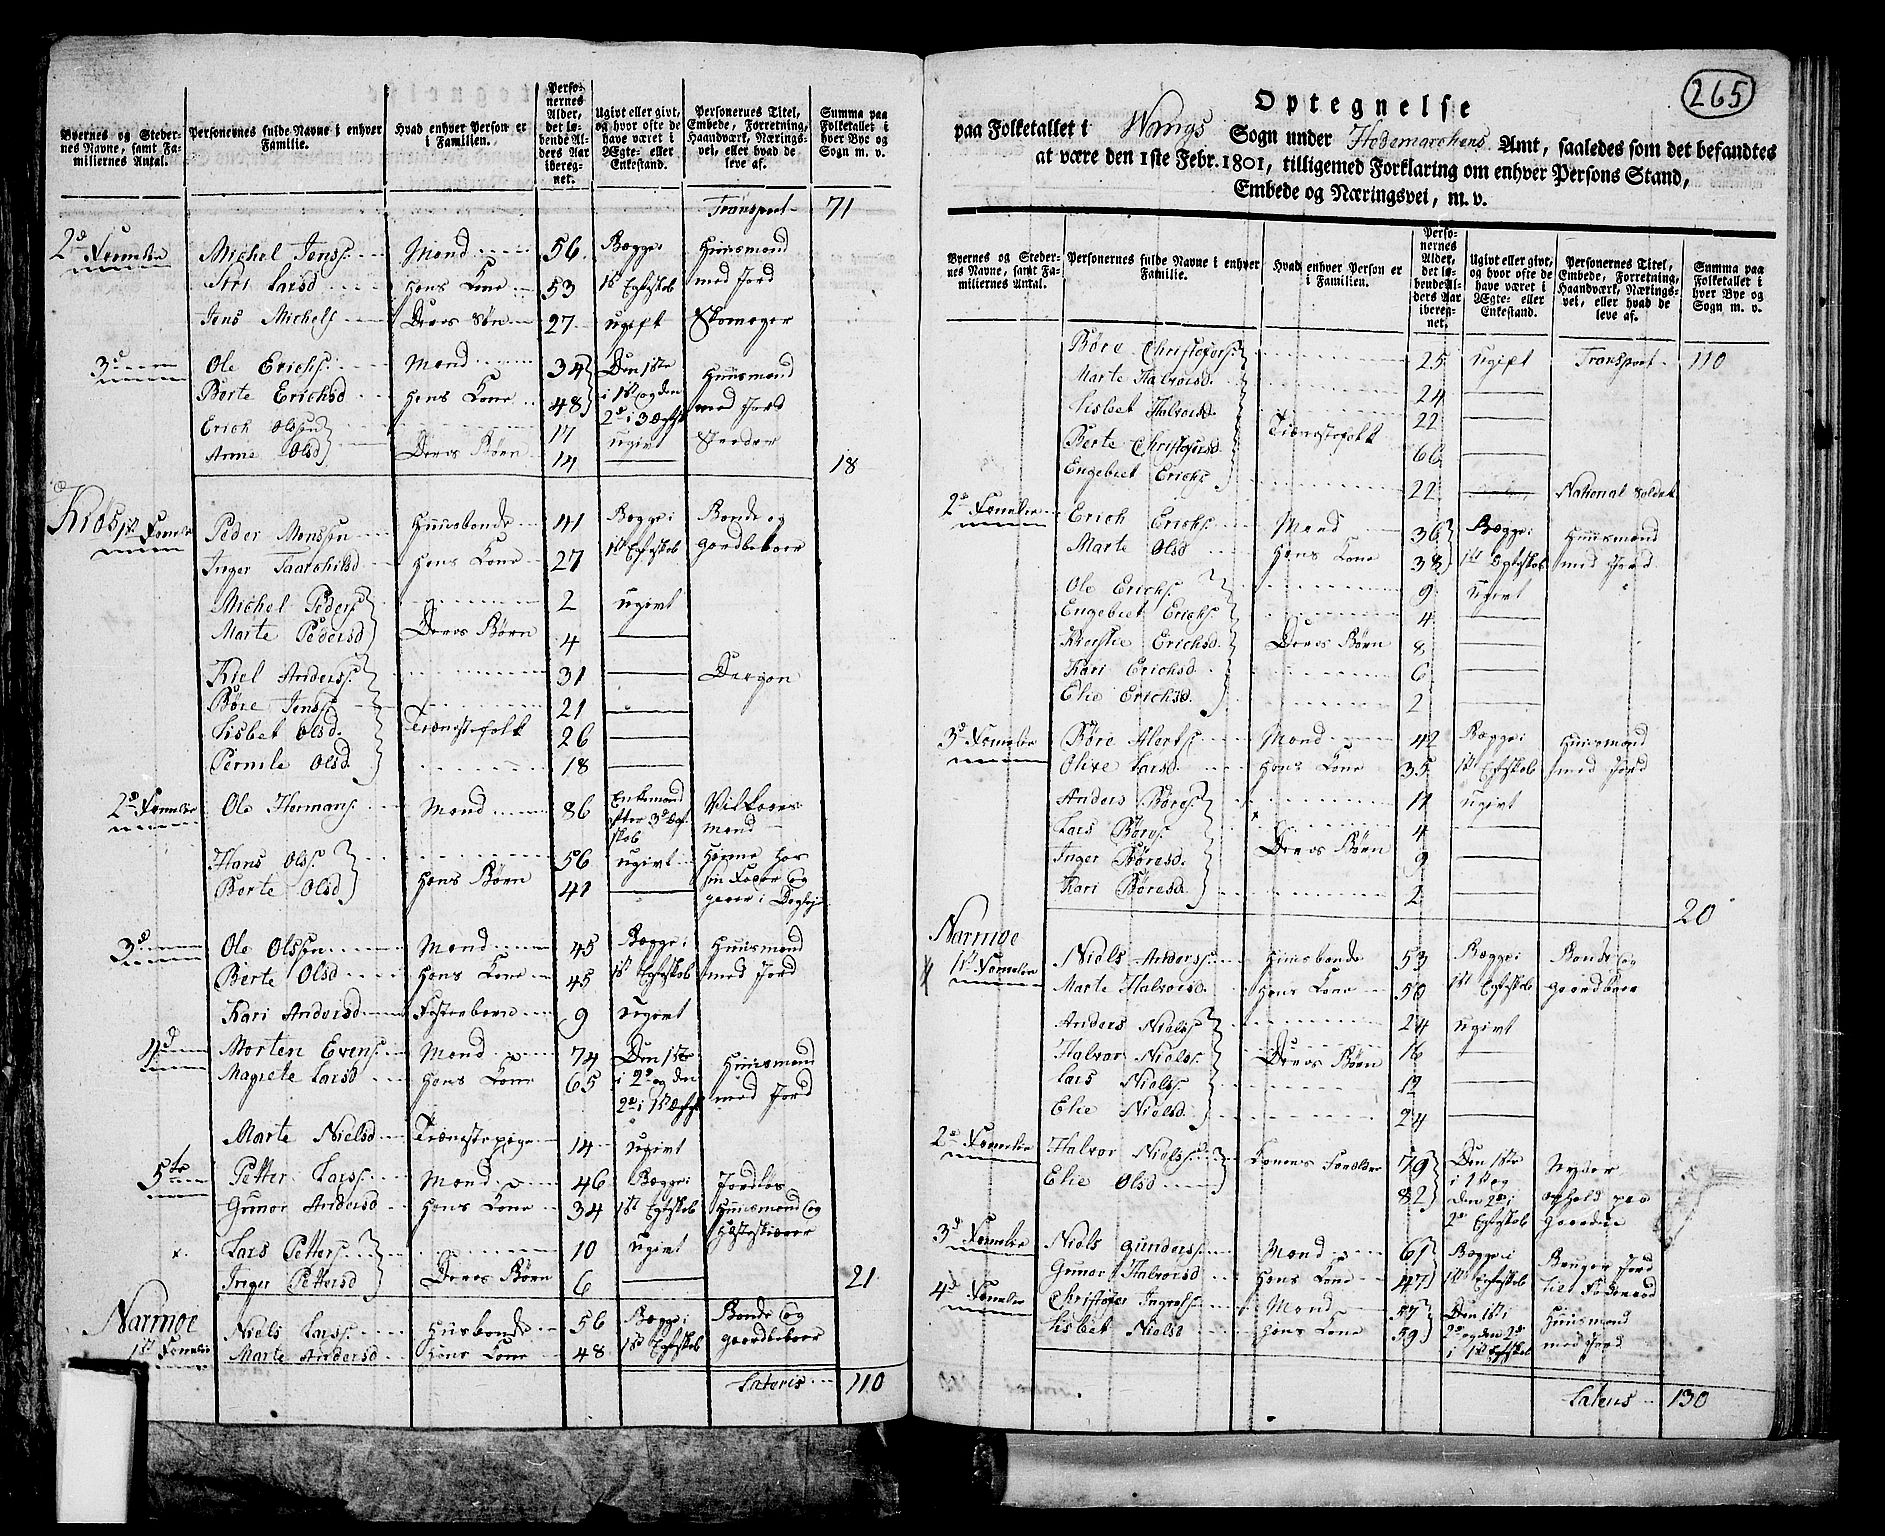 Byernes og Steder-
nes Navne, samt Fa-
miliernes Antal.
Personernes fulde Navne i enhver
Familie.
Hvad enhver Person er
i Familien.
Perso-
nernes
Alder,
det lø-
bende Al-
ders Aar
iberegnet.
Ugivt eller givt,
og hvor ofte de
have været i
Ægte- eller
Enkestand.
Personernes Titel,
Embede, Forretning,
Haandværk, Nærings-
vei, eller hvad de
leve af.
Summa paa
Folketallet i
hver Bye og
Sogn m. v.
Transport 71
2d Familie Michel Jenss. Mand 56 Begge i Huusmand
Siri Larsd hans Kone 53 1st Egteskab med Jord
Jens Michels. Deres Søn 27 ugift Skomager
3d Ole Erichs. Mand 34 Den 1ste Huusmand
Berte Erichsd hans Kone 48 i 1st og den med Jord
Erich Olssøn 17 ugivt
Anne Olsd Deres Børn 14
18
1st Familie Peder Monssøn Huusbonde 41 Begge i Bonde og
Inger Taarchilsd hans Kone 27 1st Egteskab gaardbeboer
Michel Peders. 2 ugivt
Marte Pedersd Deres Børn 4
Kiel Anderss. 31
Børe Jenss. 21
Lisbet Olsd. Tienestefolk 26
Pernile Olsd. 18
2d Familie Ole Hermans. Mand 86 Enkemand
efter 3d Egt-
skab
mand
Hans Olss. 56 ugivt
Berte Olsd hans Børn 41
3d Ole Olssøn Mand 45 Begge i Huusmand
Berte Olsd hans Kone 45 1st Egteskab med Jord
Kari Andersd Fosterbarn 9 ugivt
4d Morten Evens. Mand 74 Den 1ste Huusmand
Magrete Larsd hans Kone 65 i 2d og den med Jord
Marte Nielsd Tienestepige 14 ugivt
5te Petter Larss. Mand 46 Begge i Jordløs
Gunor Andersd hans Kone 34 1st Egteskab Huusmand og
Lars Petters. 10 ugivt
Inger Pettersd Deres Børn 6
21
Narmoe
1st Familie Niels Larss. Husbonde 56 Begge i Bonde og
Marte Andersd hans Kone 48 1st Egteskab gaardbeboer
Lateris 110
265
Optegnelse
paa Folketallet i Wangs Sogn under Hedemarchens Amt, saaledes som det befandtes
at være den 1ste Febr. 1801, tilligemed Forklaring om enhver Persons Stand,
Embede og Næringsvei, m. v.
Byernes og Steder-
nes Navne, samt Fa-
miliernes Antal.
Personernes fulde Navne i enhver
Familie.
Hvad enhver Person er
i Familien.
Perso-
nernes
Alder,
det lø-
bende Al-
ders Aar
iberegnet.
Ugivt eller givt,
og hvor ofte de
have været i
Ægte- eller
Enkestand.
Personernes Titel,
Embede, Forretning,
Haandværk, Nærings-
vei, eller hvad de
leve af.
Summa paa
Folketallet i
hver Bye og
Sogn m. v.
Børe Christofers. 25 ugift Transport 110
Marte Halvorsd. 24
Lisbet Halvorsd. 22
Berte Christofersd. Tienestefolk 66
Engebret Erichs. 22 National Soldat
2d Familie Erich Erichs. Mand 36 Begge i Huusmand
Marte Olsd hans Kone 38 1st Egteskab med Jord
Ole Erichs. 9 ugivt
Engebret Erichs. 4
Kirstie Erichsd. Deres Børn 8
Kari Erichsd 6
Elie Erichsd. 2
3d Familie Børe Alerts. Mand 42 Begge i Huusmand
Olive Larsd. hans Kone 35 1st Egteskab med Jord
Anders Børes. 11 ugivt
Lars Børes. 4
Inger Børesd. Deres Børn 9
Kari Børesd. 2
20
Narmoe
1st Familie Niels Anderss. Huusbonde 53 Begge i Bonde og
Marte Halvorsd. hans Kone 50 1st Egteskab gaardbeboer
Anders Nielss. 24 ugivt
Halvor Nielss. Deres Børn 16
Lars Nielss. 12
Elie Nielsd. 24
2d Familie Halvor Nielss. Konens Forældre 79 Den 1ste Nyder
Elie Olsd 82 i 1st og ophold paa
den 2d i gaarden
2d Egteskab
3d Familie Niels Gunderss. Mand 61 Begge i Bruger Jord
Gunor Halvorsd hans Kone 47 1st Egteskab
4d Familie Christofer Ingvols. Mand 57 Den 1st i Huusmand
Lisbet Nielsd hans Kone 59 2d og den 2d med Jord
i 1st Egteskab
Lateris 130